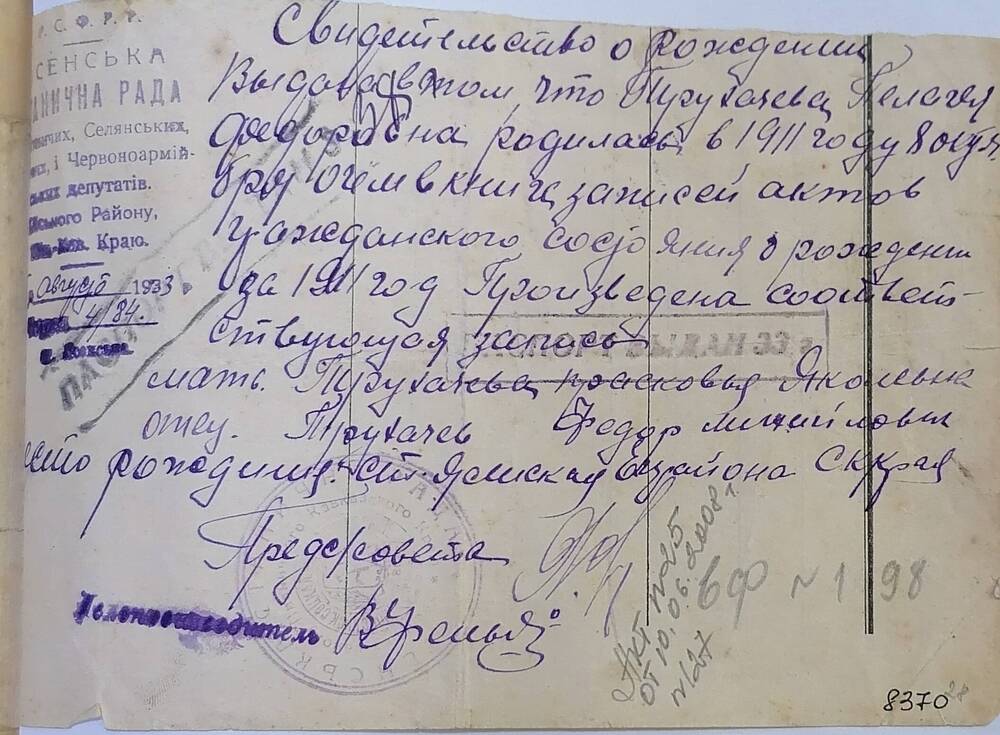 Р. С. Ф. Р. Р.
СЕНСЬКА
АНИЧНА РАДА
Селянських,
і Червоноармій-
ських депутатів.
ського Району,
Краю.
Август 1933
4/84.
Свидетельство о рождении
Выдана в том что Трухачева Пелагея
Федоровна родилась в 1911 году 8 октя
бря о чем в книга записей актов
гражданского состояния о рождени
за 1911 год Произведена соответ-
ствующая запись
мать. Трухачева Прасковья
отец. Трухачев Федор Михайлович
есто рождения. района СККрая
Предсовета
Делопроизводитель
Акт №25
от 10.06.2008 г.
№127
ВФ №198
8370